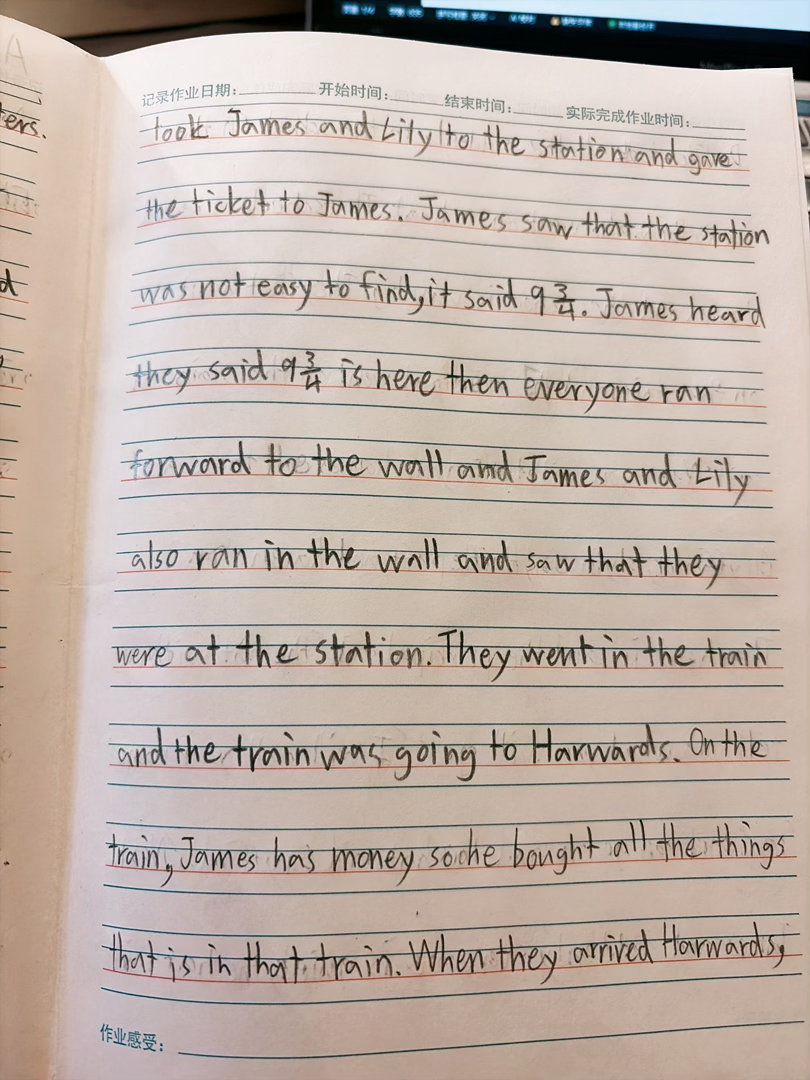 记录作业日期: 开始时间: 结束时间: 实际完成作业时间:
ters.
took James and Lily to the station and gave
the ticket to James. James saw that the station
was not easy to find, it said 9 3/4. James heard
they said 9 3/4 is here then everyone ran
forward to the wall and James and Lily
also ran in the wall and saw that they
were at the station. They went in the train
and the train was going to Harwards. On the
train, James has money so he bought all the things
that is in that train. When they arrived Harwards,
作业感受: